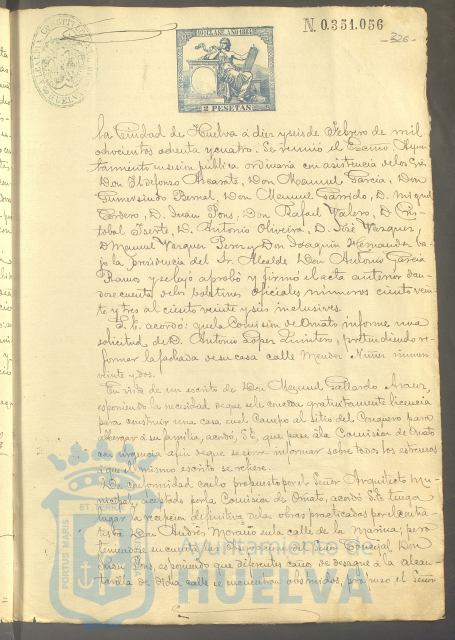 N. 0.351.056
326
ALCALDIA CONSTITUCIONAL
HUELVA
10ª CLASE AÑO 1884
2 PESETAS
la Ciudad de Huelva á diez y seis de Febrero de mil
ochocientos ochenta y cuatro. Se reunió el Excmo Ayun-
tamiento en sesión pública ordinaria con asistencia de los Sres
Don Ildefonso Alicante, Don Manuel García, Don
Gumersindo Bernal, Don Manuel Garrido, D. Miguel
Cordero, D. Juan Pons, Don Rafael Valero, D. Cris-
tobal Iserte, D. Antonio Oliveira, D. José Vazquez,
D. Manuel Vazquez Perez y Don Joaquin Fernandez ba-
jo la presidencia del Sr. Alcalde Don Antonio Garcia
Ramos y se leyó aprobó y firmó el acta anterior dan-
dose cuenta de los boletines oficiales números ciento vein-
te y tres al ciento veinte y seis inclusives.
S. E. acordó: que la Comision de Ornato informe una
solicitud de D. Antonio Lopez Quintero, pretendiendo re-
formar la fachada de su casa calle Mendez Nuñez número
veinte y dos.
En vista de un escrito de Don Manuel Gallardo
esponiendo la necesidad de que se le conceda gratuitamente licencia
para construir una casa en el Campo al sitio del Conquero para
albergar á su familia, acordó, S.E. que pase á la Comision de Ornato
con urgencia afin de que se sirva informar sobre todos los estremos
á que el mismo escrito se refiere.
De conformidad con lo propuesto por el Señor Arquitecto Mu-
nicipal y aceptado por la Comision de Ornato, acordó S.E. tenga
lugar la recepcion definitiva de las obras practicadas por el contra-
tista Don Andrés Moraño en la calle de la Marina; pero
teniendose en cuenta lo manifestado por el Señor Concejal Don
Juan Pons, esponiendo que diferentes caños de desagüe á la alcan-
tarilla de dicha calle se encuentran obstruidos, previno el Señor
PORTUS MARIS
ET TERRÆ
Ayuntamiento de
HUELVA